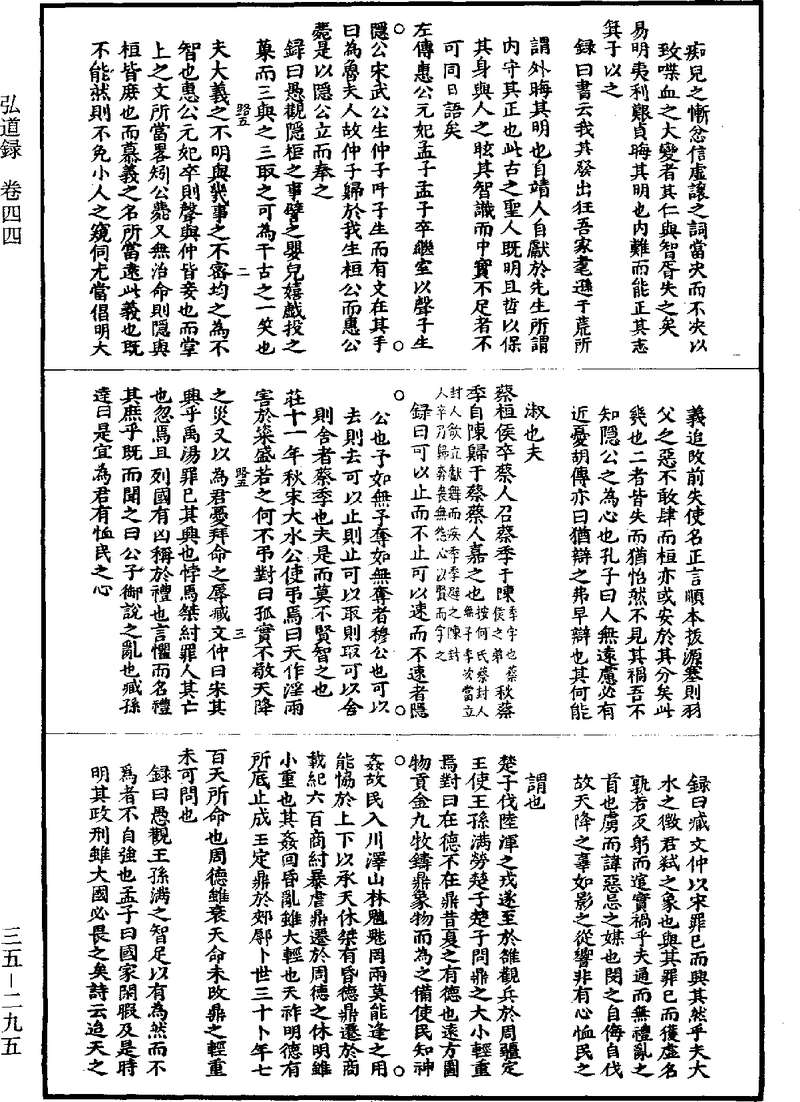 弘道録　卷四四
三五—二九五
痴兒之慚忿信虛讓之詞當夬而不夬以
致喋血之大變者其仁與智胥失之矣
易明夷利艱貞晦其明也内難而能正其志
箕子以之
録曰書云我其發出狂吾家耄遜于荒所
謂外晦其明也自靖人自獻於先生所謂
内守其正也此古之聖人既明且哲以保
其身與人之眩其智識而中實不足者不
可同日語矣
左傳惠公元妃孟子孟子卒繼室以聲子生
隱公宋武公生仲子仲子生而有文在其手
曰為魯夫人故仲子歸於我生桓公而惠公
薨是以隱公立而奉之
録曰愚觀隱桓之事譬之嬰兒嬉戲投之
菓而三與之三取之可為千古之一笑也
路五
二
夫大義之不明與幾事之不密均之為不
智也惠公元妃卒則聲與仲皆妾也而掌
上之文所當畧矧公薨又無治命則隱與
桓皆庶也而慕義之名所當遠此義也既
不能然則不免小人之窺伺尤當倡明大
義追改前失使名正言順本拔源塞則羽
父之惡不敢肆而桓亦或安於其分矣此
幾也二者皆失而猶怡然不見其禍吾不
知隱公之為心也孔子曰人無遠慮必有
近憂胡傳亦曰猶辯之弗早辯也其何能
淑也夫
蔡桓侯卒蔡人召蔡季于陳季字也蔡侯之弟秋蔡
季自陳歸于蔡蔡人嘉之也按何氏蔡封人無子季次當立
封人欲立獻舞而疾季季避之陳封人卒乃歸奔喪無怨心以賢而字之
録曰可以止而不止可以速而不速者隱
公也予如無予奪如無奪者穆公也可以
去則去可以止則止可以取則取可以舍
則舍者蔡季也夫是而莫不賢智之也
莊十一年秋宋大水公使弔焉曰天作淫雨
害於粢盛若之何不弔對曰孤實不敬天降
路五
三
之災又以為君憂拜命之辱臧文仲曰宋其
興乎禹湯罪已其興也悖焉桀紂罪人其亡
也忽焉且列國有凶稱於禮也言懼而名禮
其庶乎既而聞之曰公子御說之亂也臧孫
達曰是宜為君有恤民之心
録曰臧文仲以宋罪已而興其然乎夫大
水之徵君弒之象也與其罪已而獲虛名
孰若反躬而逭實禍乎夫通而無禮亂之
首也虜而諱惡忌之媒也閔之自侮自伐
故天降之辜如影之從響非有心恤民之
謂也
楚子伐陸渾之戎遂至於雒觀兵於周疆定
王使王孫滿勞楚子楚子問鼎之大小輕重
焉對曰在德不在鼎昔夏之有德也遠方圖
物貢金九牧鑄鼎象物而為之備使民知神
姦故民入川澤山林魑魅罔兩莫能逢之用
能恊於上下以承天休桀有昏德鼎遷於商
載紀六百商紂暴虐鼎遷於周德之休明雖
小重也其姦回昏亂雖大輕也天祚明德有
所底止成王定鼎於郟鄏卜世三十卜年七
百天所命也周德雖衰天命未改鼎之輕重
未可問也
録曰愚觀王孫滿之智足以有為然而不
爲者不自強也孟子曰國家閑暇及是時
明其政刑雖大國必畏之矣詩云迨天之